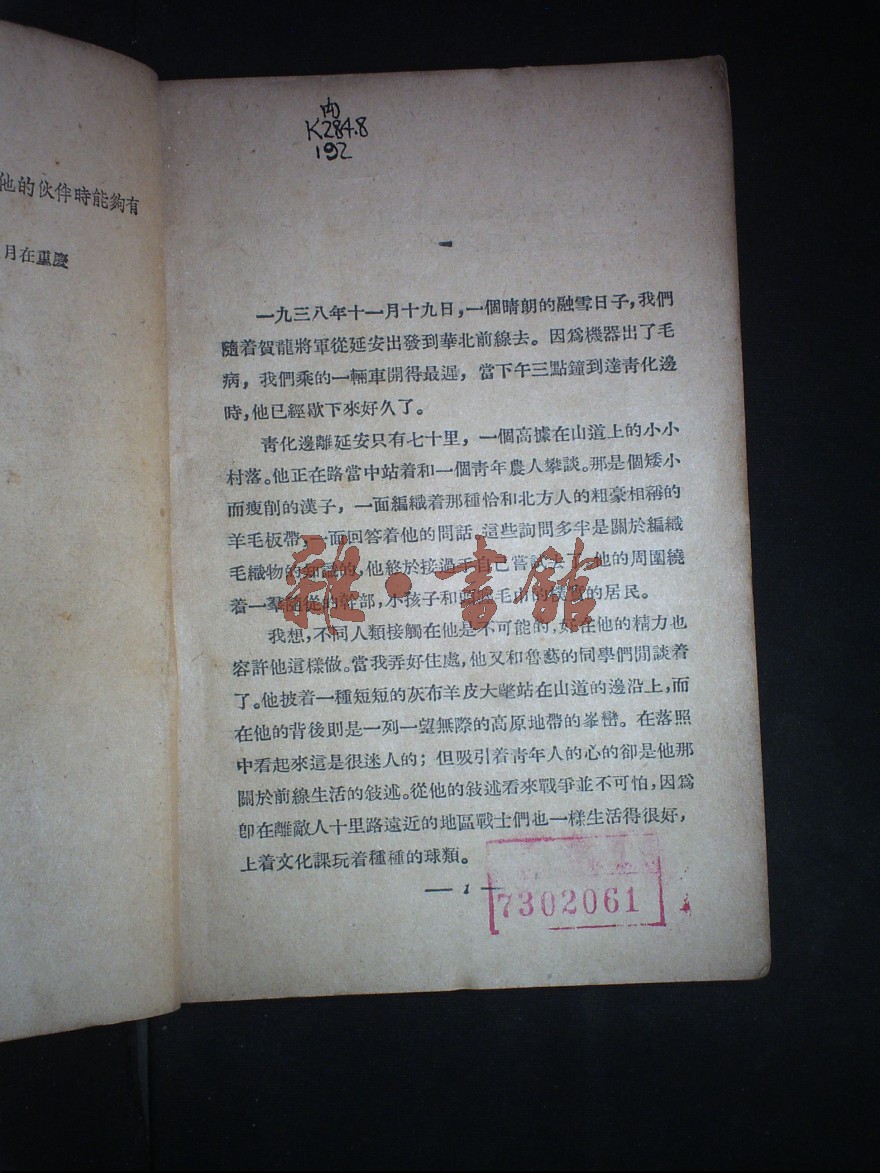 他的伙伴時能夠有
月在重慶
内
K284.8
192
一
一九三八年十一月十九日，一個晴朗的融雪日子，我們
隨着賀龍將軍從延安出發到華北前線去。因爲機器出了毛
病，我們乘的一輛車開得最遲，當下午三點鐘到達靑化邊
時，他已經歇下來好久了。
靑化邊離延安只有七十里，一個高據在山道上的小小
村落。他正在路當中站着和一個靑年農人攀談。那是個矮小
而瘦削的漢子，一面編織着那種恰和北方人的粗豪相稱的
羊毛板帶，一面回答着他的問話，這些詢問多半是關於編織
毛織物的知識的，他終於接過手自己嘗試去了，他的周圍繞
着一羣隨從的幹部，小孩子和的居民。
我想，不同人類接觸在他是不可能的，好在他的精力也
容許他這樣做。當我弄好住處，他又和魯藝的同學們閒談着
了。他披着一種短短的灰布羊皮大氅站在山道的邊沿上，而
在他的背後則是一列一望無際的高原地帶的峯巒。在落照
中看起來這是很迷人的；但吸引着靑年人的心的卻是他那
關於前線生活的敍述。從他的敍述看來戰爭並不可怕，因爲
卽在離敵人十里路遠近的地區戰士們也一樣生活得很好，
上着文化課玩着種種的球類。
— 1 —
7302061
雜·書館